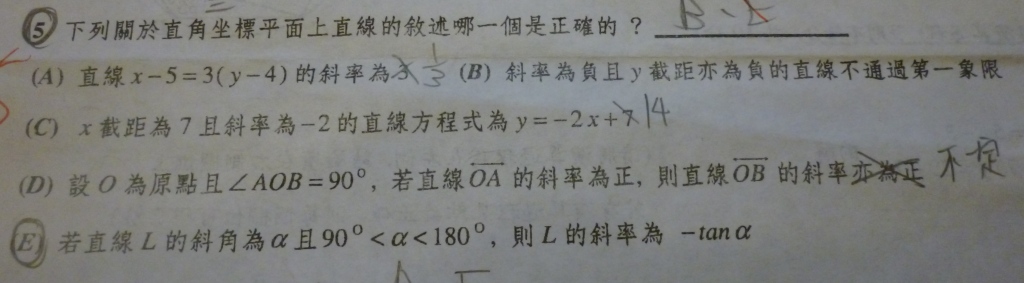 5 下列關於直角坐標平面上直線的敘述哪一個是正確的？ B、E
(A) 直線 x-5=3(y-4) 的斜率為3 1/3 (B) 斜率為負且 y 截距亦為負的直線不通過第一象限
(C) x 截距為 7 且斜率為 -2 的直線方程式為 y=-2x+7 14
(D) 設 O 為原點且∠AOB=90°，若直線 OA 的斜率為正，則直線 OB 的斜率亦為正 不定
(E) 若直線 L 的斜角為 α 且 90°<α<180°，則 L 的斜率為 -tan α